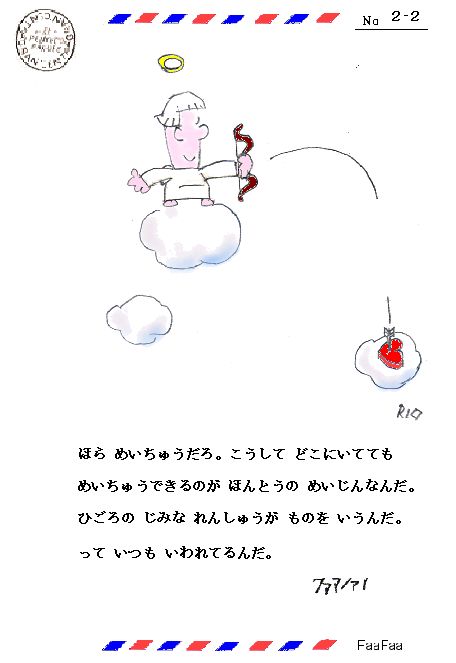 No 2-2
RIO
ほら めいちゅうだろ。こうして どこにいてても
めいちゅうできるのが ほんとうの めいじんなんだ。
ひごろの じみな れんしゅうが ものを いうんだ。
って いつも いわれてるんだ。
FaaFaa